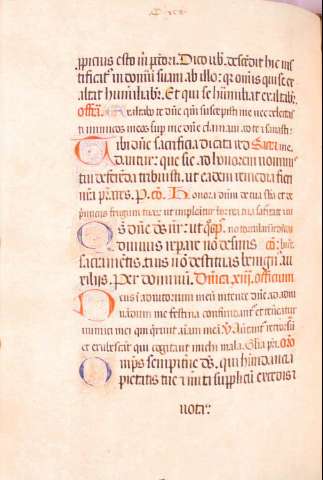 ppicius esto m̄ pctori. Dico ub̄. descēdit hic ius
tificat̄ in domū suam ab illo: q̄ om̄is qui se ex
altat humiliabr̄. Et qui se humiliat exaltabr̄.
offa. Exaltabo te dn̄e qm̄ suscepisti me nec delectas
ti inimicos meos sup me dn̄e clamaui ad te ⁊ sanasti:
Tibi dn̄e sacrificia dicata redd Secre
dantur: que sic ad honorem nomīs
tui deferenda tribuisti. ut eadem remedia fieri
nr̄a p̄stes. P. cō. Honora dn̄m de tua sta et de
ut impleātur horrea tua saturitate
Qs dn̄e ds̄ nr̄: ut q̄s
diuinis reparare nō desinis cō:
sacramētis. tuis nō destituas benign̄ au
xilijs. Per dominū. Dn̄ica xiii. officium
Deus ī adiutorium meū intende dn̄e ad adiu
uandum me festina confundant̄ et reuerean̄t
inimici mei qui querunt aīam meā. V. Auertant̄ retrorsū
et erubescāt qui cogitant michi mala. Glīa pr̄i. oro
Omp̄s sempitne ds̄. qui habundācia
pietatis tue ⁊ merita supplicū excedis ⁊
uota: